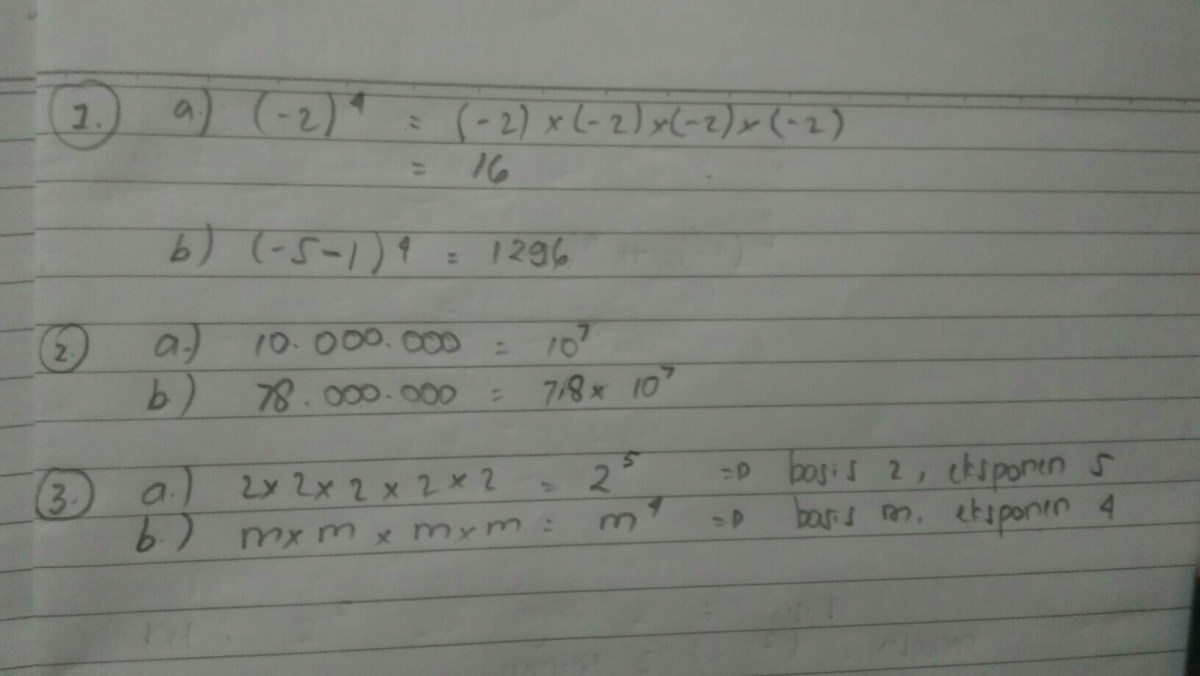 1. a.) (-2)⁴ = (-2) × (-2) × (-2) × (-2)
= 16
b) (-5-1)⁴ = 1296
2. a.) 10.000.000 = 10⁷
b) 78.000.000 = 7,8 × 10⁷
3. a.) 2 × 2 × 2 × 2 × 2 = 2⁵ => basis 2, eksponen 5
b.) m × m × m × m = m⁴ => basis m, eksponen 4